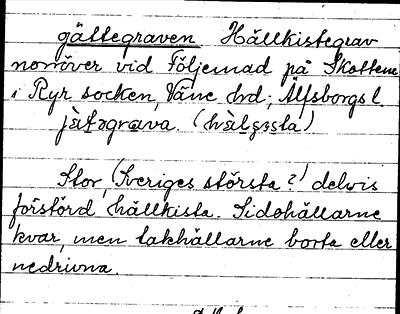 gättegraven Hällkistegrav
norröver vid Följemad på Skottene
i Ryr socken, Väne hrd; Älfsborgs l.
jätəgrava. (hälsista)
Stor, (Sveriges största?) delvis
förstörd hällkista. Sidohällarne
kvar, men takhällarne borta eller
nedrivna.